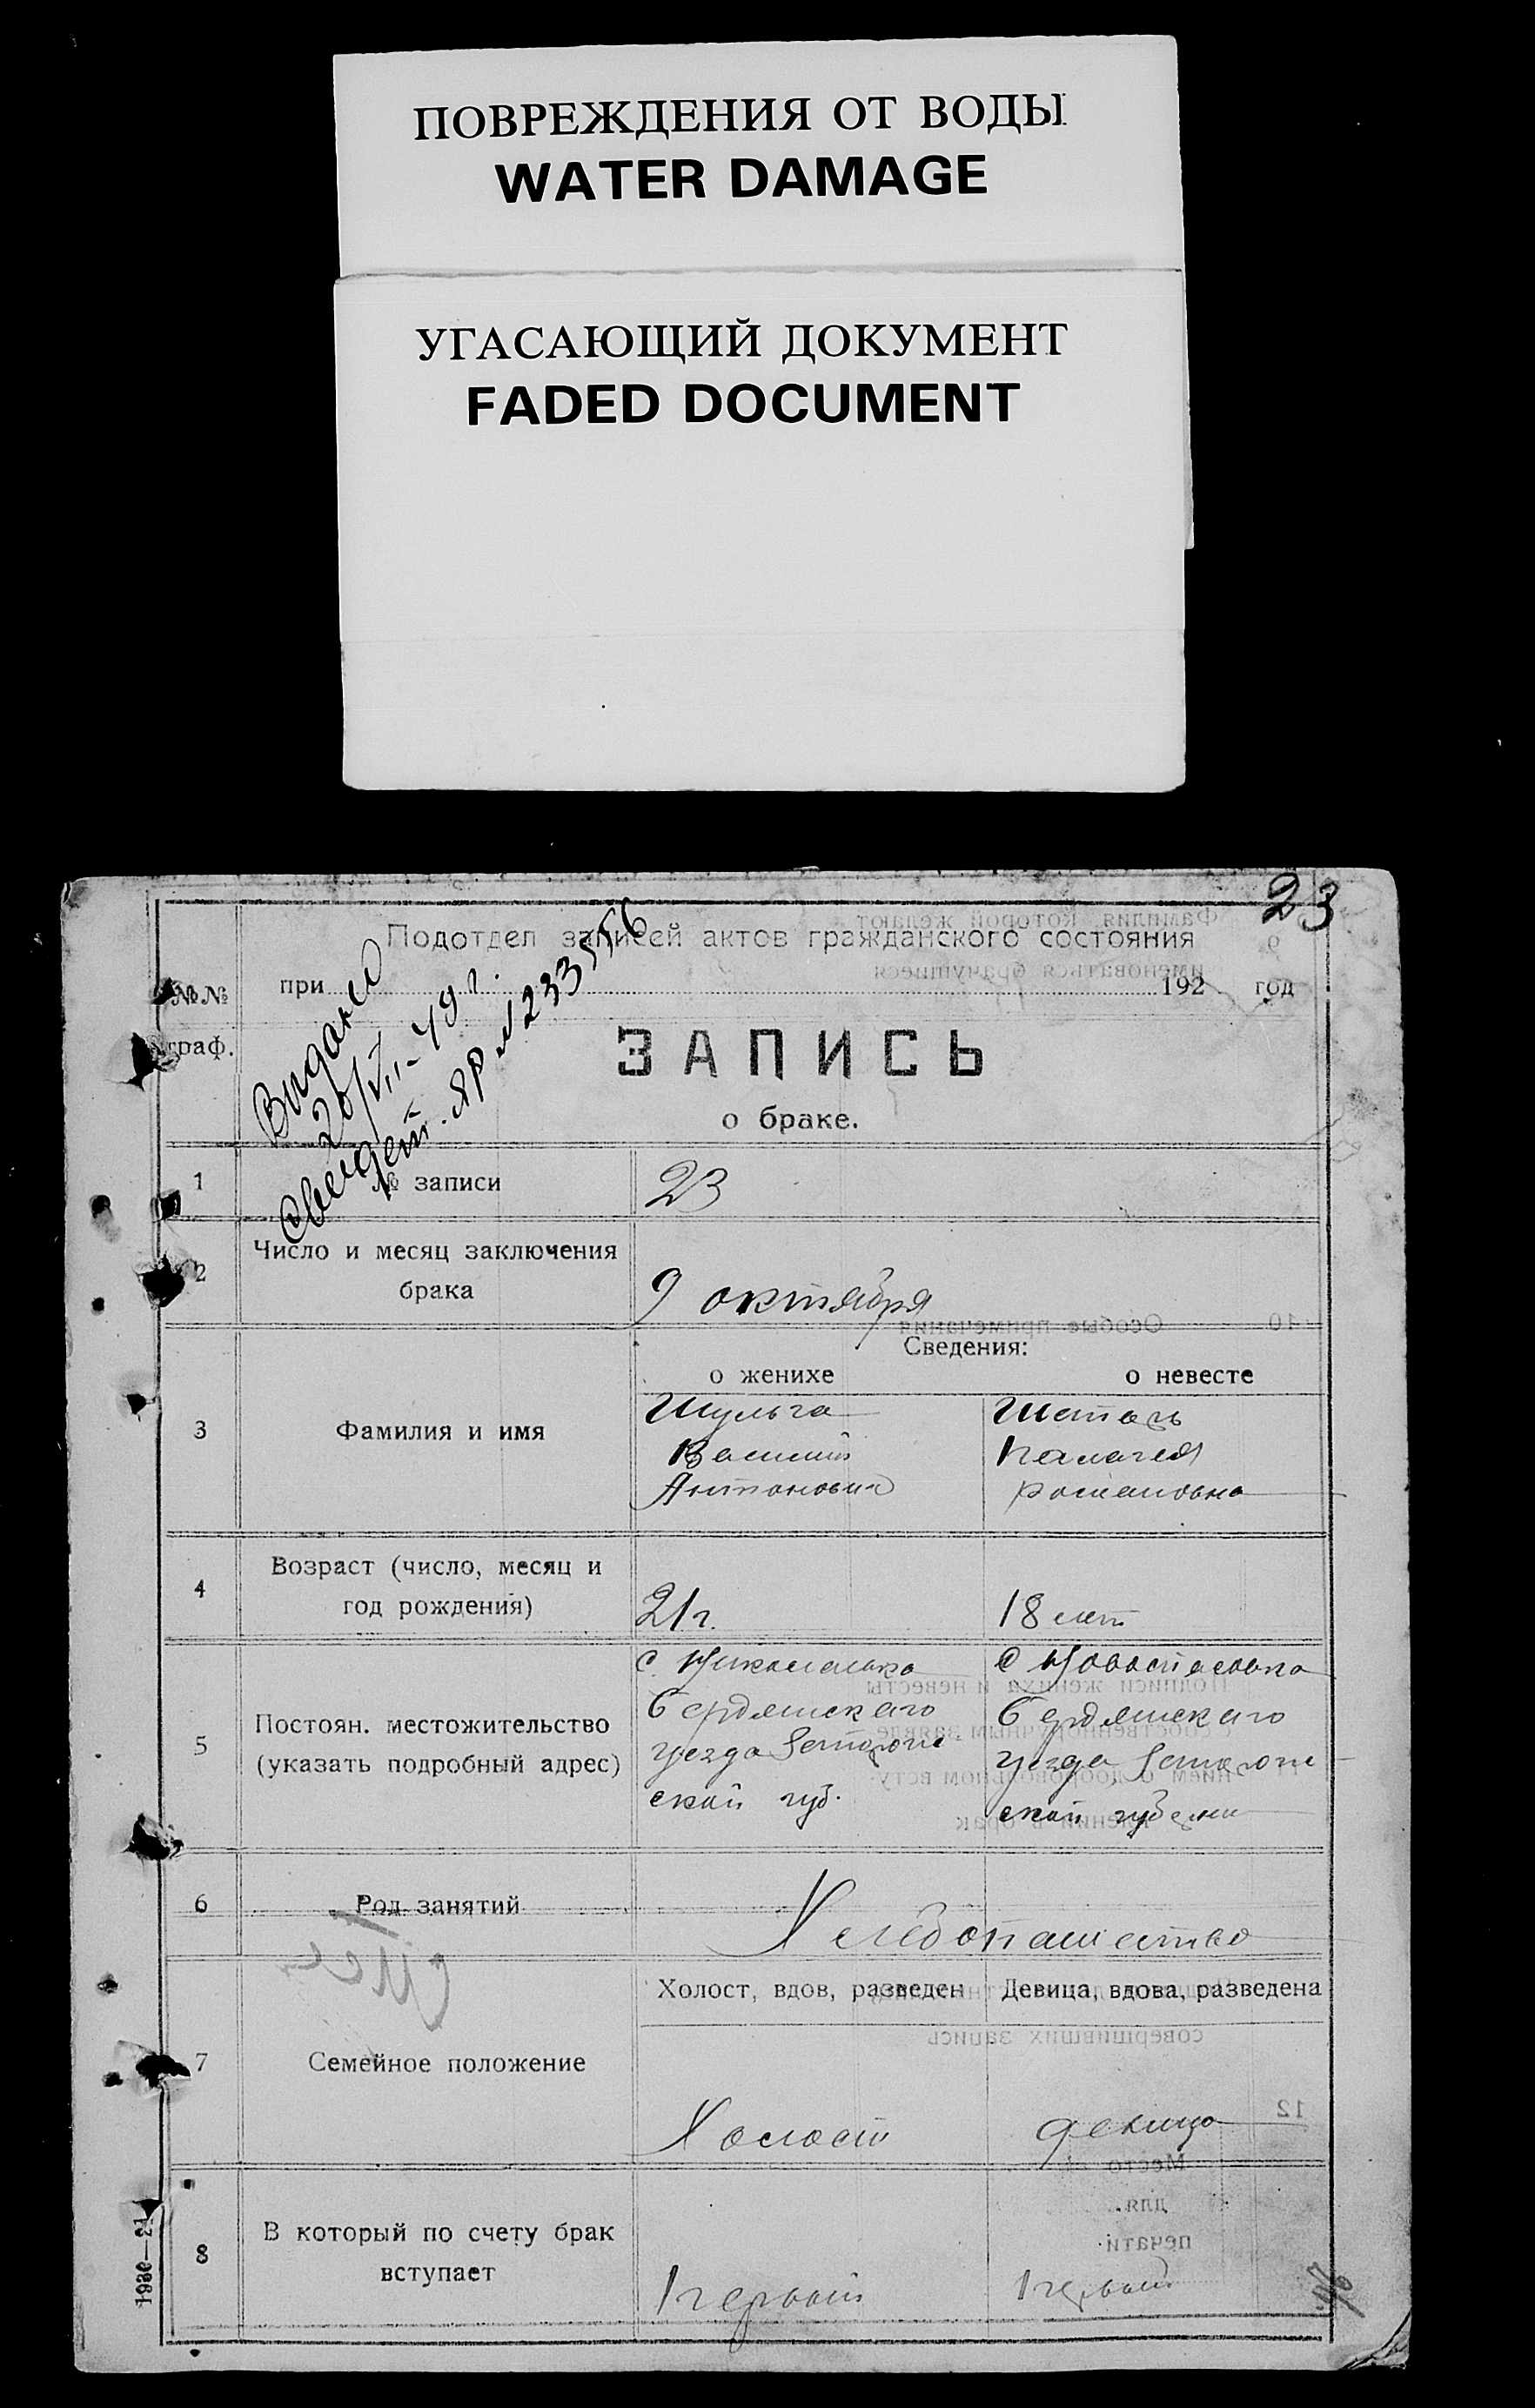 ПОВРЕЖДЕНИЯ ОТ ВОДЫ
WATER DAMAGE
УГАСАЮЩИЙ ДОКУМЕНТ
FADED DOCUMENT
23
Подотдел записей актов гражданского состояния
№№ при 192 год
граф.
Видано
20/VII-49 г.
свидет. ЯР № 233556
ЗАПИСЬ
о браке.
1 № записи 23
2 Число и месяц заключения
брака 9 октября
Сведения:
о женихе о невесте
3 Фамилия и имя
Шульга
Василий
Антонович
Шеталь
Палагея
Романовна
4 Возраст (число, месяц и
год рождения)
21 г. 18 лет
5 Постоян. местожительство
(указать подробный адрес)
с. Николаевка
Бердянскаго
уезда Запорож
ской губ.
с Новоспасовка
Бердянскаго
уезда Запорож
ской губернии
6 Род занятий Хлебопашество
Холост, вдов, разведен Девица, вдова, разведена
7 Семейное положение
Холост девица
8 В который по счету брак
вступает
первый первый